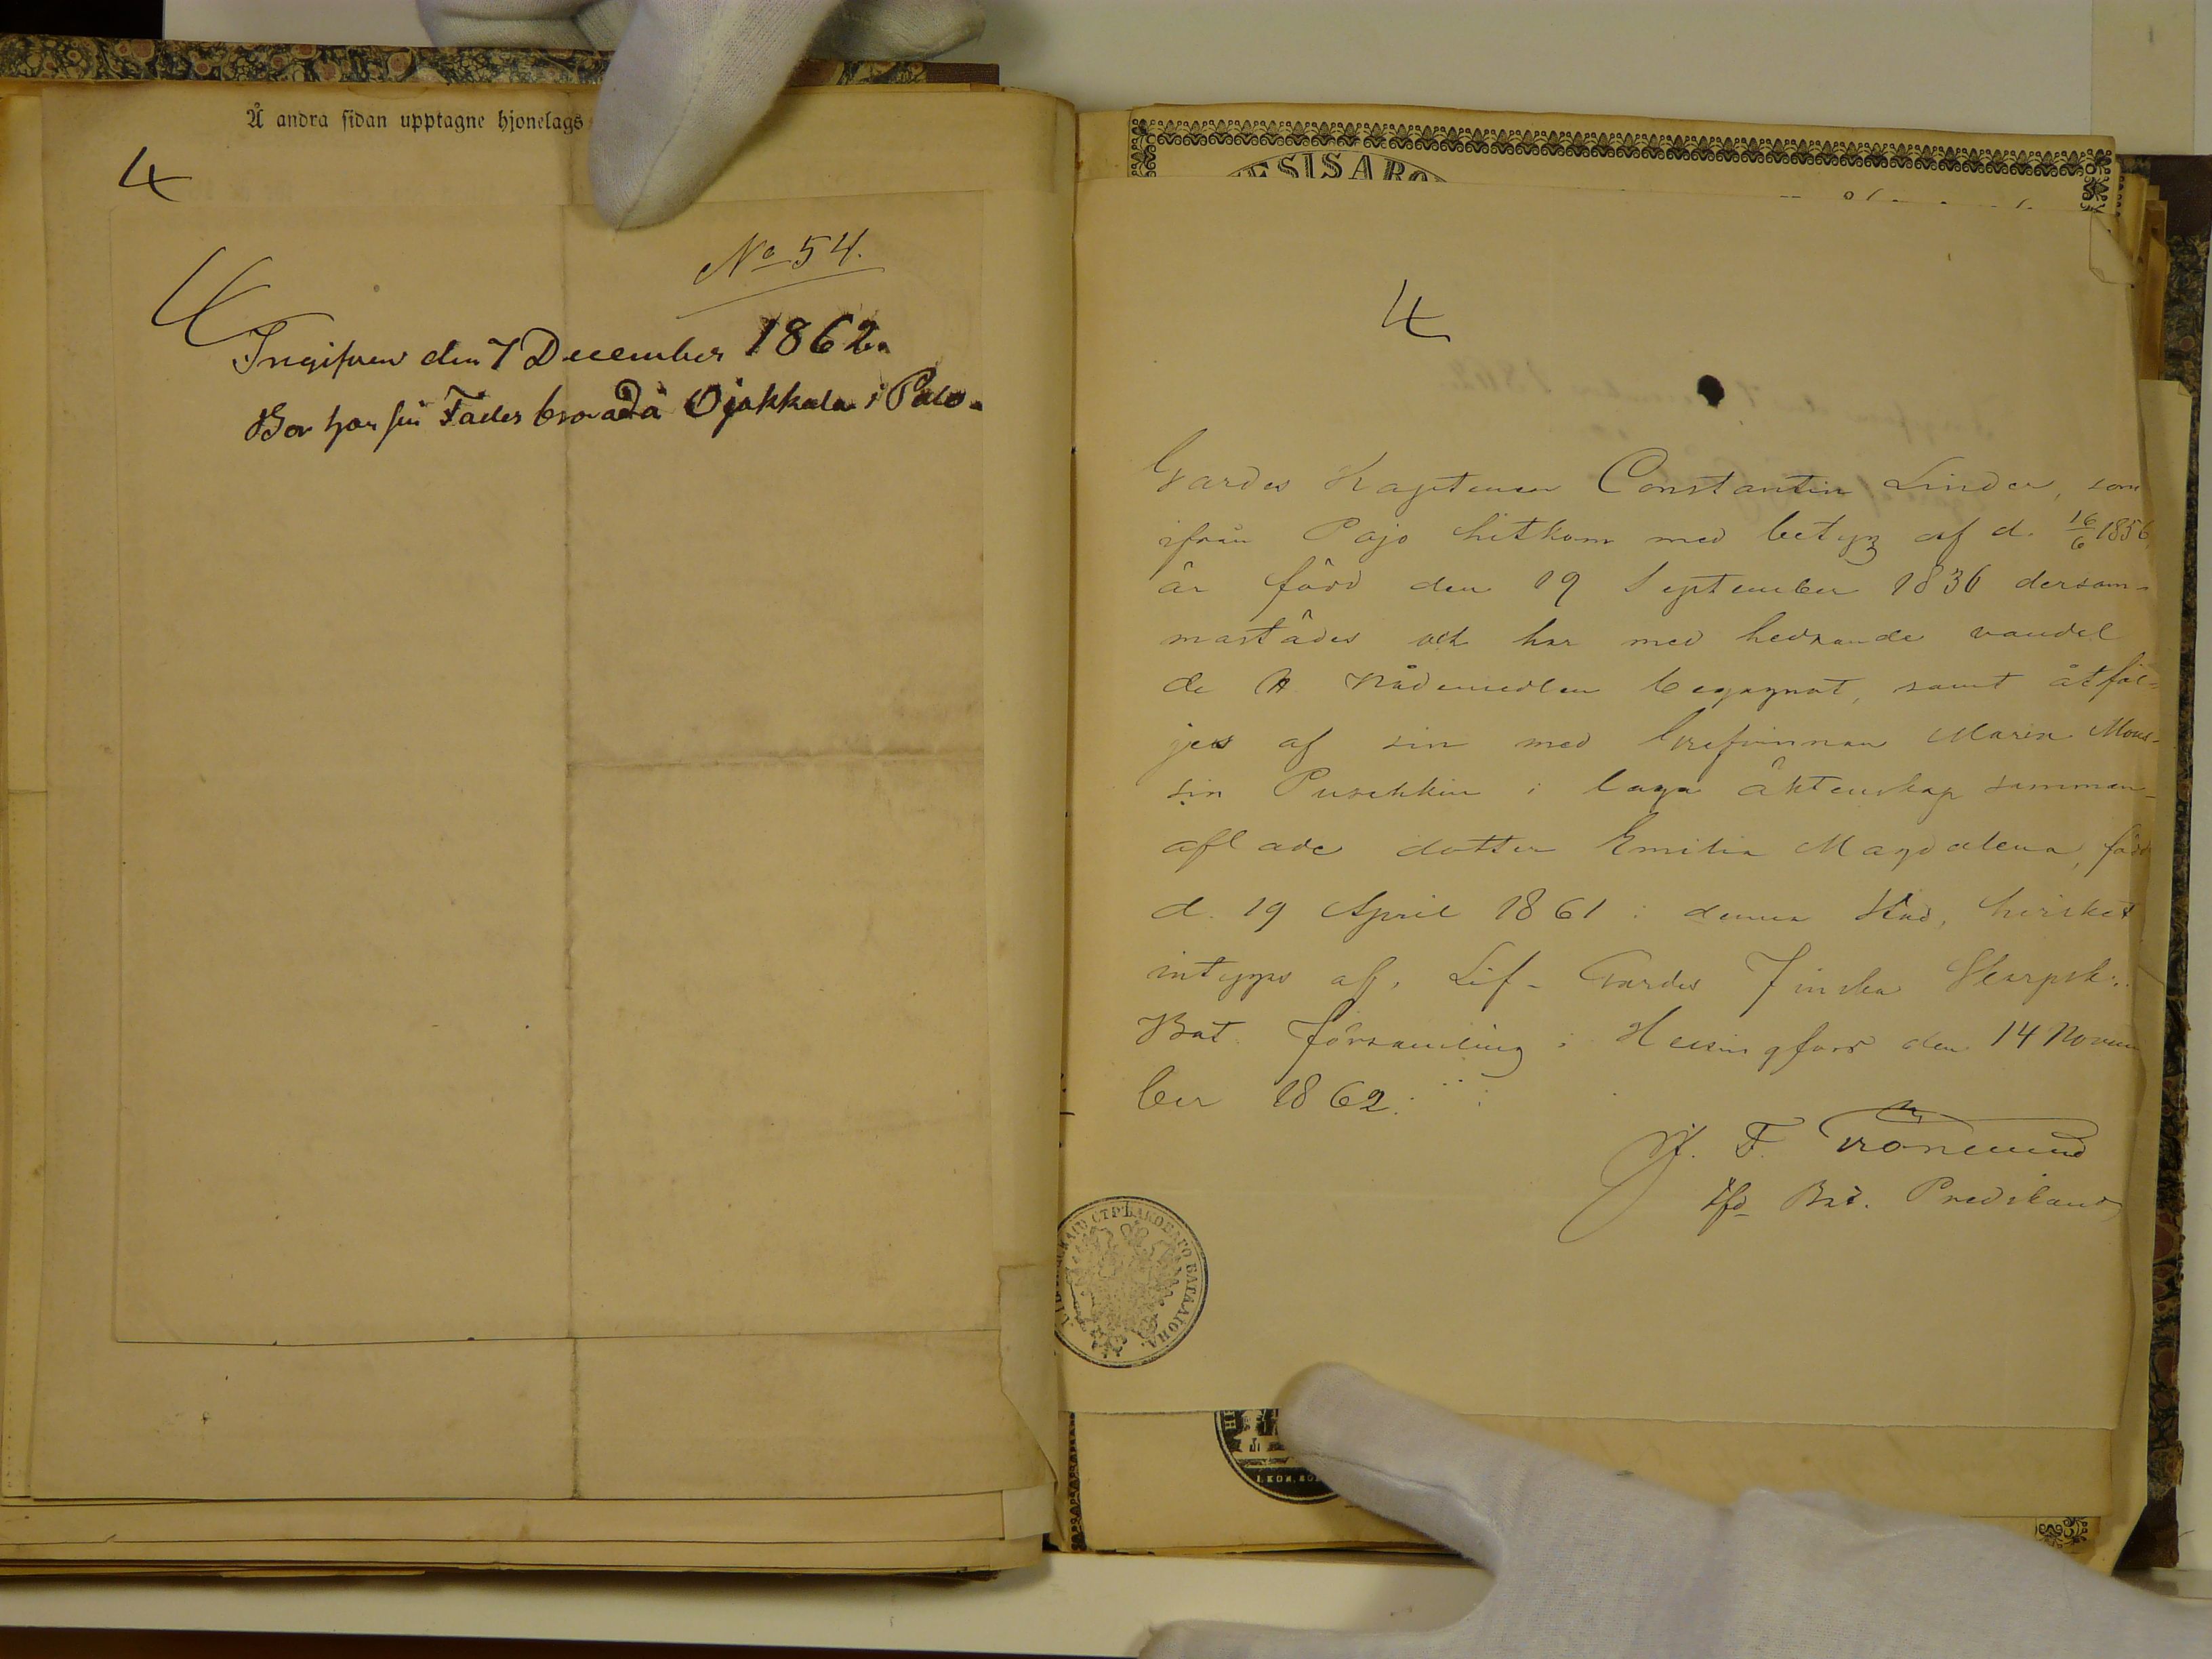 Å andra sidan upptagne hjonelags
4
No 54.
4
Ingifven den 7 December 1862.
Bor hos sin Faders broradå Ojakkala i Palo.
ESISARO
4
Gardes Kaptenen Constantin Linder, som
ifrån Pojo hitkom med betyg af d. 16/6 1856,
är född den 19 September 1836 dersam-
mastädes och har med hedrande vandel
de H. Nådemedlen begagnat, samt åtföl-
jes af sin med Grefvinnan Maria Mous-
sin Puschkin i laga äktenskap samman-
aflade dotter Emilia Magdalena, född
d. 19 April 1861 i denna Stad, hvilket
intygas af, Lif-Gardes Finska Skarpsk.
Bat. Församling i Helsingfors den 14 Novem
ber 1862.
F.
tfd Bat. Predikand
СТРѢЛКОВАГО БАТАЛІОНА.